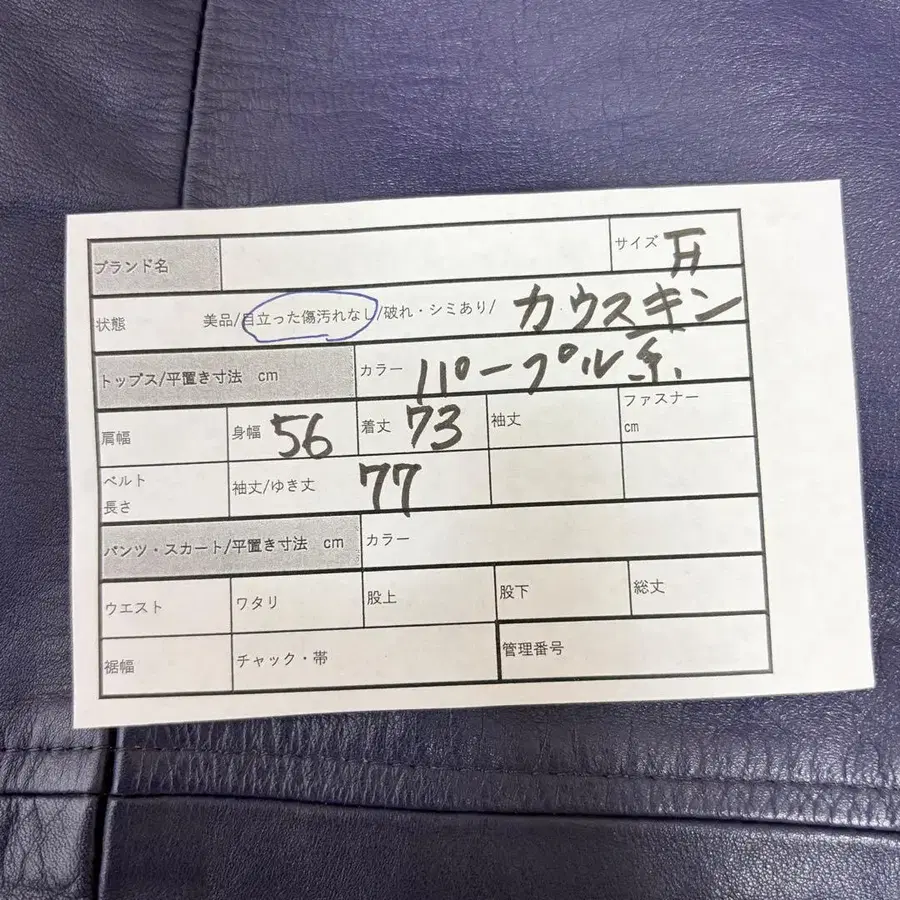 ブランド名 サイズ
状態 美品/目立った傷汚れなし/破れ・シミあり/ カウスキン
トップス/平置き寸法 cm カラー パープル系
肩幅 身幅 56 着丈 73 袖丈 ファスナー cm
ベルト長さ 袖丈/ゆき丈 77
パンツ・スカート/平置き寸法 cm カラー
ウエスト ワタリ 股上 股下 総丈
裾幅 チャック・帯 管理番号